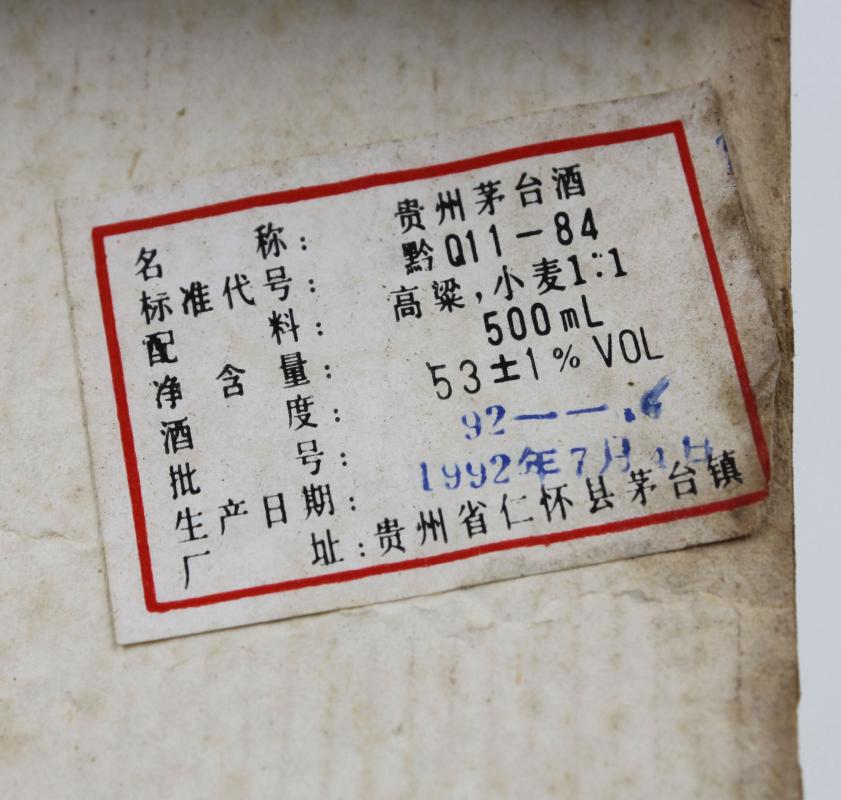 名称：贵州茅台酒
标准代号：黔Q11-84
配料：高粱,小麦1:1
净含量：500mL
酒度：53±1%VOL
批号：92——.6
生产日期：1992年7月1日
厂址：贵州省仁怀县茅台镇